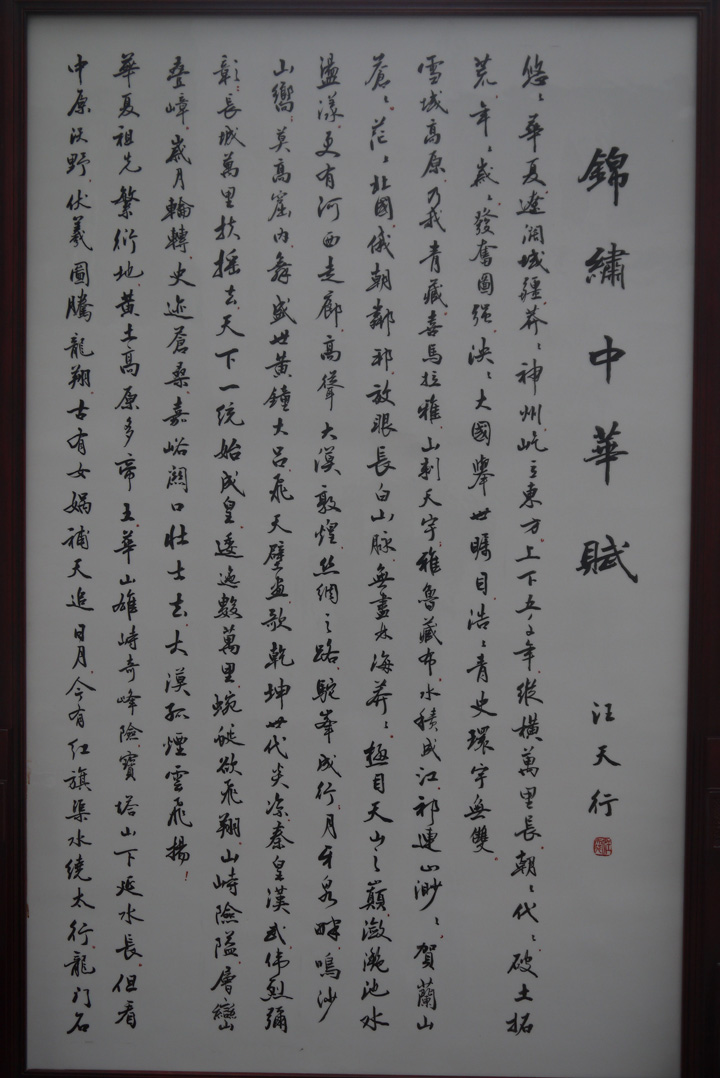 錦繡中華賦
汪天行
悠〻華夏遼濶域疆莽〻神州屹立東方上下五千年縱橫萬里長朝〻代〻破土拓
荒年〻歲〻發奮圖强泱〻大國舉世矚目浩〻青史環宇無雙
雪域高原乃我青藏喜馬拉雅山刺天宇雅魯藏布水積成江祁連山渺〻賀蘭山
蒼〻茫〻北國俄朝鄰邦放眼長白山脉無盡林海莽〻極目天山之巔瀲灧池水
盪漾更有河西走廊高聳大漠敦煌絲綢之路駝峯成行月牙泉畔鳴沙
山響莫高窟内舞盛世黄鐘大吕飛天壁畫歌乾坤世代炎凉秦皇漢武偉烈彌
彰長城萬里扶摇去天下一统始成皇逶迤數萬里蜿蜒欲飛翔山峙險隘層巒
叠嶂歲月輪轉史迹蒼桑嘉峪關口壯士去大漠孤煙雲飛揚！
華夏祖先繁衍地黄土高原多帝王華山雄峙奇峰險寶塔山下延水長但看
中原沃野伏羲圖騰龍翔古有女媧補天追日月今有红旗渠水绕太行龍门石